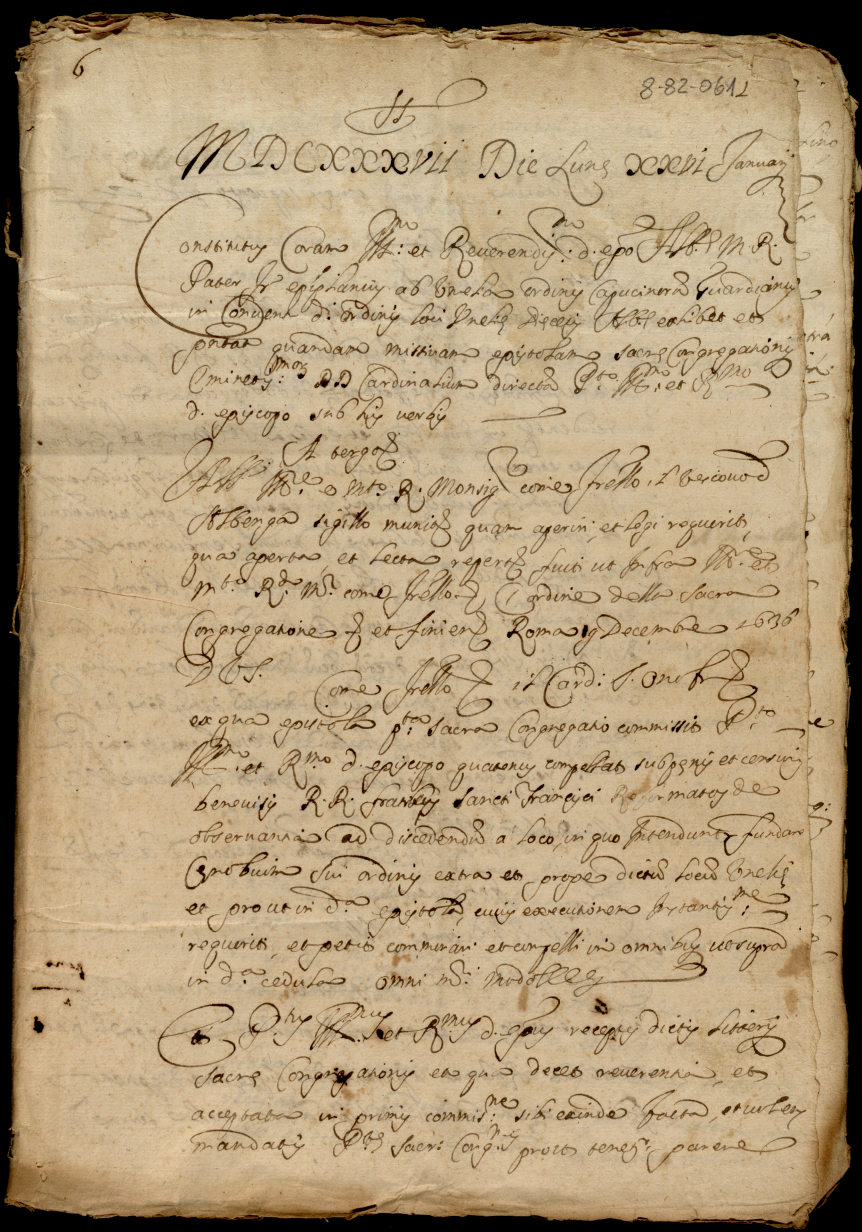 6
8-82-0612
MDCXXXVII Die Lunę XXVI Januarij
Constitutus Coram Ill.mo et Reverendiss.mo d. epō Alb.ę M. R.
Pater Fr epifanius ab Unelia ordinis Capucinorū Guardianus
in Convent. d.i ordinis loci Unelię dięcesis Alb.ę exibet et
pñtat quandam missivam epistolam sacrę Congregationis
Eminetiss.morum DD Cardinalium directā P.to Ill.mo et R.mo
d. episcopo sub his verbis
A tergo
All Ill.re e m.to R. Monsig.r come fratello il Vescovo d
Albenga sigillo munit quam aperiri, et legi requirit,
qua aperta, et lecta repert fuit ut infra Ill.re et
m.to R.do M.r come fratello Cordine della Sacra
Congregatione et finien Roma 19 Decembre 1636
D V S.
Come fratello il Card: S. Onofr
ex qua epistola p.ta sacra Congregatio commisit P.to
Ill.mo et R.mo d. episcopo quatenus compellat sub penis et censuris
benevisis R.R. fratres Sancti Francisci Reformatos de
observantia ad discedendū a loco, in quo intendunt fundare
Cęnobium sui ordinis extra et prope dictū locū Unelię
et prout in d.a epistola cuius executionem instantiss.me
requirit, et petit comminari et compelli in omnibus ut supra
in d.a cedula omni m.ri modo
Et P.tus Ill.mus et R.mus d. epus receptis dictis litteris
Sacrę Congregationis et qua decet reverentia, et
acceptata in primis commis.ne sibi exinde facta, et volens
mandatis P.tę Sacr: Congr.nis prout tenet.r parere